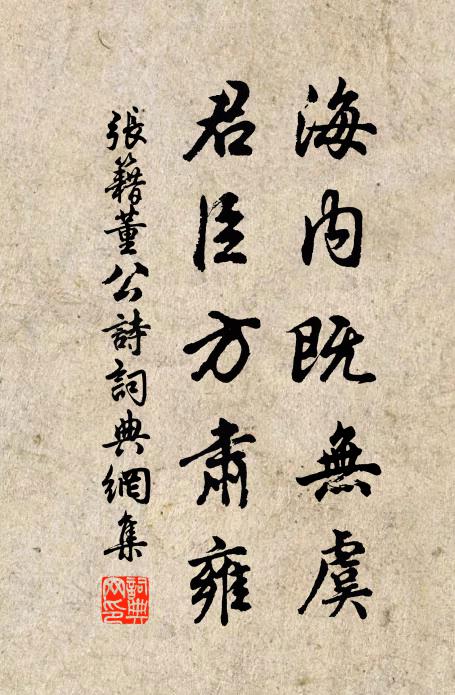 海内既無虞
君臣方肅雍
張籍董公詩詞典網集
詞典網印